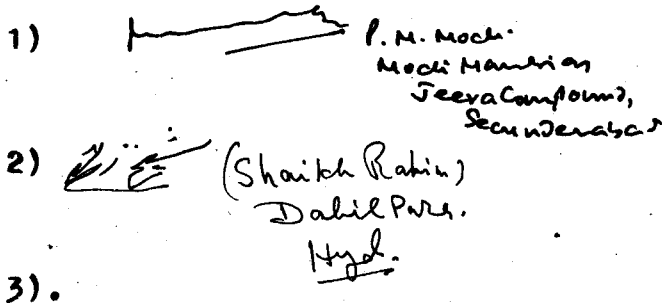 1) P. M. Modi
Modi Mansion
Jeera Compound,
Secunderabad
2) (Shaikh Rahim)
Dabilpura.
Hyd.
3).